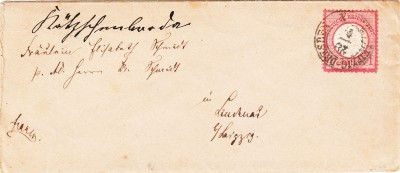 Kötzschenbroda
Fräulein Elisabeth Schmidt
p. Ad. Herrn Dr. Schmidt
in
Lindenau
b/Leipzig.
franco.